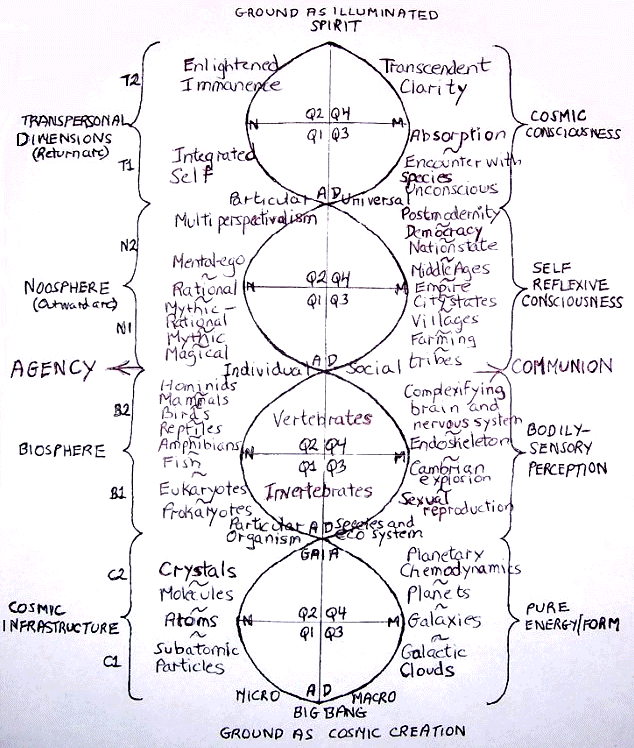 GROUND AS ILLUMINATED
SPIRIT
T2
Enlightened
Immanence
Transcendent
Clarity
TRANSPERSONAL
DIMENSIONS
(Return arc)
Q2 Q4
N M
Q1 Q3
COSMIC
CONSCIOUSNESS
T1
Integrated
Self
Absorption
~
Encounter with
species
Unconscious
Particular A D Universal
N2
Multiperspectivalism
Postmodernity
~
Democracy
~
Nation state
~
Middle Ages
~
Empire
~
City states
~
Villages
~
Farming
~
tribes
NOOSPHERE
(Outward arc)
Mental-ego
~
Rational
~
Mythic-
Rational
~
Mythic
~
Magical
Q2 Q4
N M
Q1 Q3
SELF
REFLEXIVE
CONSCIOUSNESS
N1
AGENCY
Individual A D Social
COMMUNION
B2
Hominids
~
Mammals
~
Birds
~
Reptiles
~
Amphibians
~
Fish
~
Eukaryotes
~
Prokaryotes
Vertebrates
Complexifying
brain and
nervous system
~
Endoskeleton
~
Cambrian
explosion
~
Sexual
reproduction
BIOSPHERE
Q2 Q4
N M
Q1 Q3
BODILY-
SENSORY
PERCEPTION
B1
Invertebrates
Particular A D Species and
Organism eco system
GAIA
C2
Crystals
~
Molecules
~
Atoms
~
Subatomic
Particles
Planetary
Chemodynamics
~
Planets
~
Galaxies
~
Galactic
Clouds
COSMIC
INFRASTRUCTURE
Q2 Q4
N M
Q1 Q3
PURE
ENERGY/FORM
C1
MICRO A D MACRO
BIG BANG
GROUND AS COSMIC CREATION